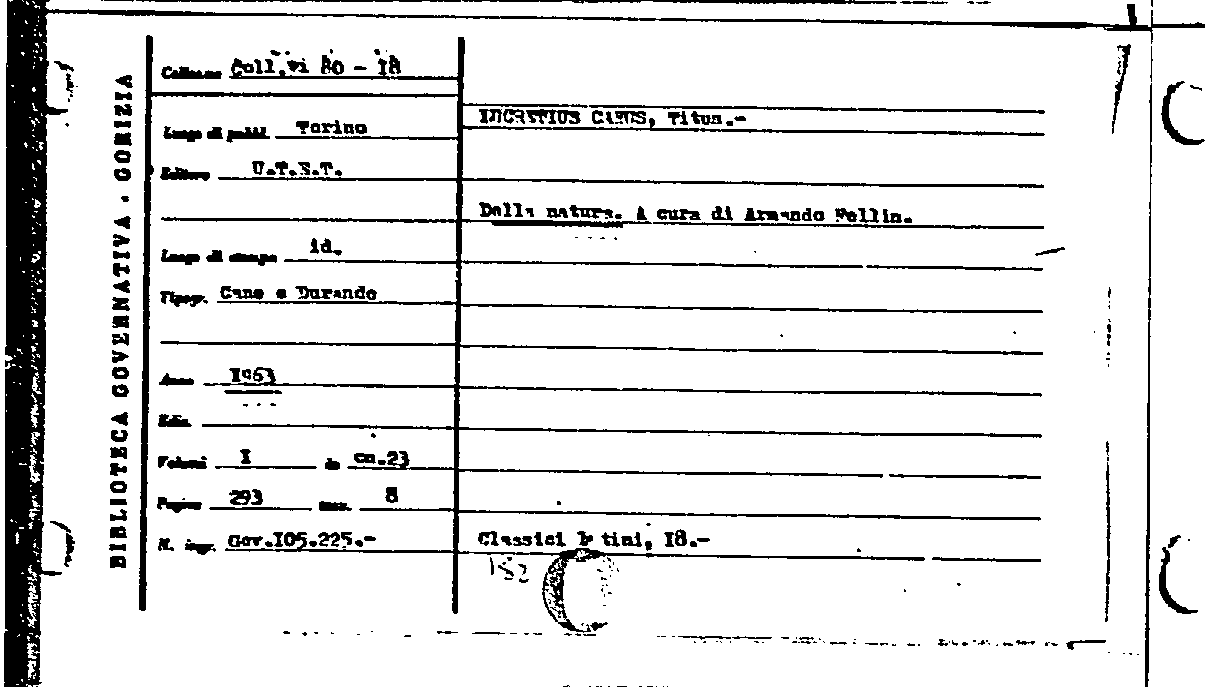 BIBLIOTECA GOVERNATIVA . GORIZIA
Collocaz. Coll.vi 80 - I8
Luogo di pubbl. Torino
Editore U.T.E.T.
Luogo di stampa id.
Tipogr. Cane e Durando
Anno I963
Ediz.
Volumi I in cm.23
Pagine 293 tav. 8
N. ingr. Gov.I05.225.-
LUCRETIUS CARUS, Titus.-
Della natura. A cura di Armando Fellin.
Classici latini, I8.-
152